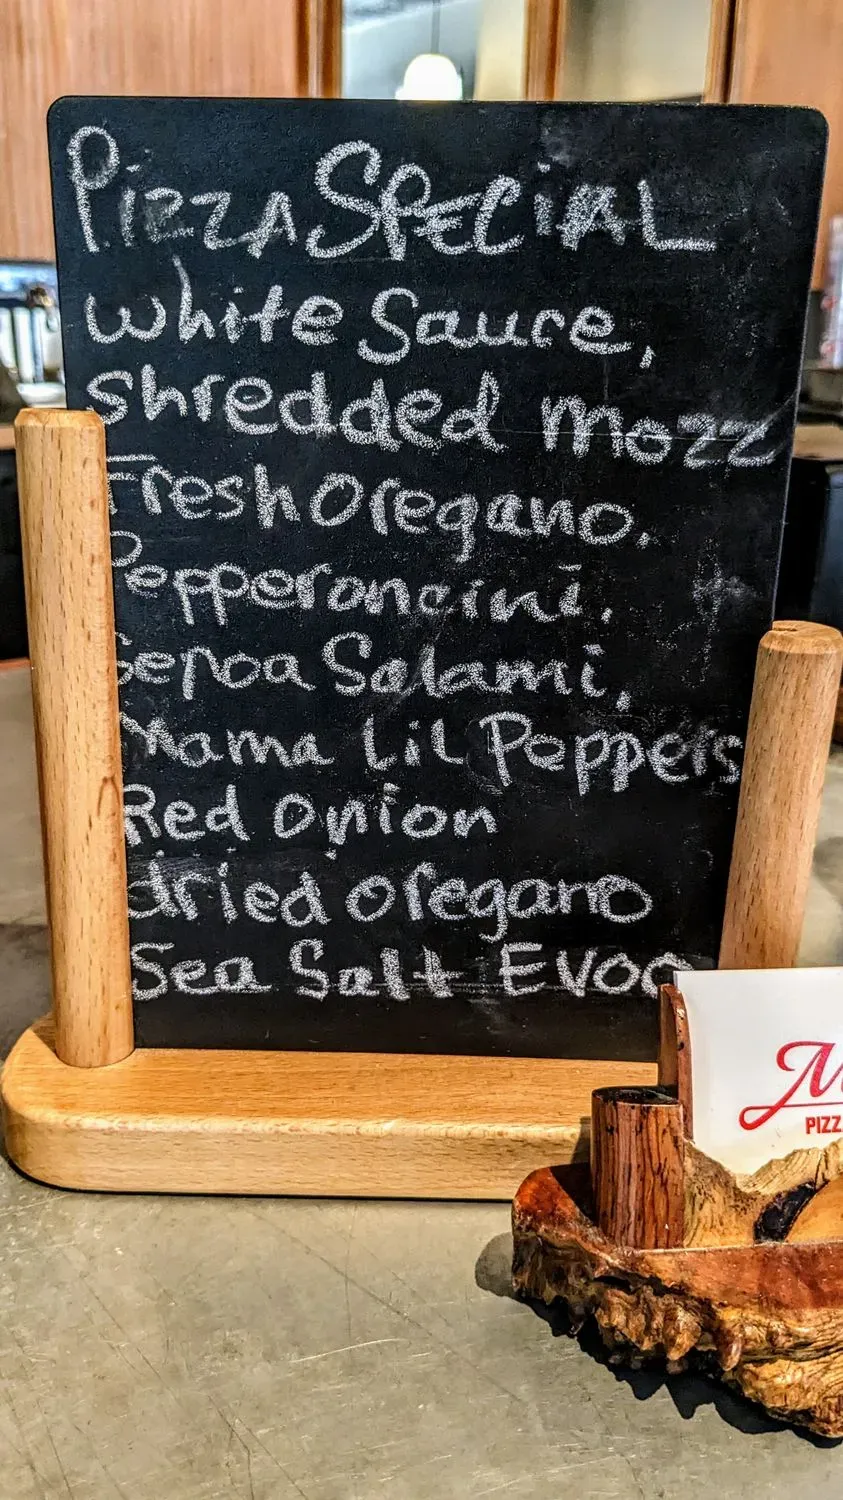 Pizza Special
White Sauce,
Shredded Mozz
Fresh Oregano.
Pepperoncini,
Genoa Salami,
Mama Lil Peppers
Red Onion
dried oregano
Sea Salt EVOO
PIZZ